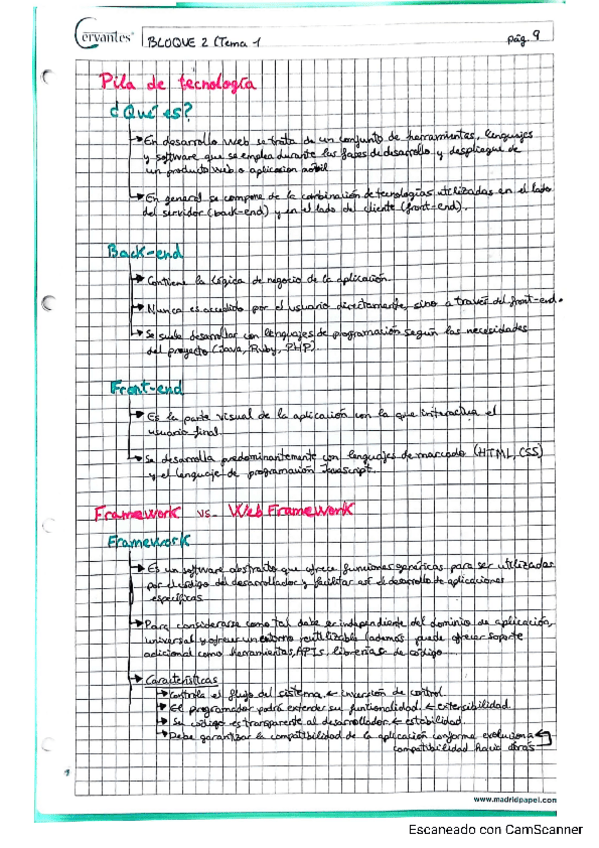 Cervantes®
BLOQUE 2 (Tema 1
pág. 9
Pila de tecnología
¿Qué es?
En desarrollo web se trata de un conjunto de herramientas, lenguajes
y software que se emplea durante las fases de desarrollo y despliegue de
un producto web o aplicación móvil
En general se compone de la combinación de tecnologías utilizadas en el lado
del servidor (back-end) y en el lado de cliente (front-end).
Back-end
Contiene la lógica de negocio de la aplicación.
Nunca es accedido por el usuario directamente, sino a través del front-end.
Se suele desarrollar con lenguajes de programación según las necesidades
del proyecto (Java, Ruby, PHP)
Front-end
Es la parte visual de la aplicación con la que interactúa el
usuario final.
Se desarrolla predominantemente con lenguajes de marcado (HTML, CSS)
y el lenguaje de programación Javascript.
Framework vs. Web Framework
Framework
Es un software abstracto que ofrece funciones genéricas para ser utilizadas
por el código del desarrollador y facilitar así el desarrollo de aplicaciones
específicas
Para considerarse como tal debe ser independiente del dominio de aplicación,
universal y ofrecer un entorno reutilizable (además puede ofrecer soporte
adicional como herramientas, APIs, librerías de código
Características
Controla el flujo del sistema. ← inversión de control.
El programador podrá extender su funcionalidad. ← extensibilidad.
Su código es transparente al desarrollador. ← estabilidad.
Debe garantizar la compatibilidad de la aplicación conforme evoluciona ←
compatibilidad hacia atrás
1
www.madridpapel.com
Escaneado con CamScanner